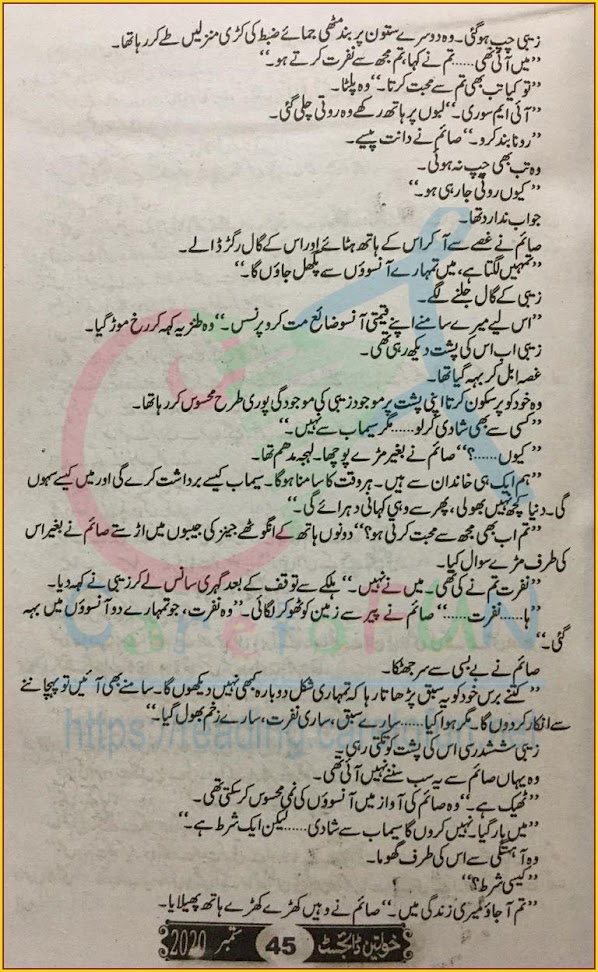 زیبی چپ ہو گئی۔ وہ دوسرے ستون پر بند مٹھی جمائے ضبط کی کڑی منزلیں طے کر رہا تھا۔
’’میں آئی تھی......تم نے کہا، تم مجھ سے نفرت کرتے ہو۔‘‘
’’تو کیا تب بھی تم سے محبت کرتا۔‘‘ وہ پلٹا۔
’’آئی ایم سوری۔‘‘ لبوں پر ہاتھ رکھے وہ روتی چلی گئی۔
’’رونا بند کرو۔‘‘ صائم نے دانت پیسے۔
وہ تب بھی چپ نہ ہوئی۔
’’کیوں روئی جا رہی ہو۔‘‘
جواب ندارد تھا۔
صائم نے غصے سے آ کر اس کے ہاتھ ہٹائے اور اس کے گال رگڑ ڈالے۔
’’تمہیں لگتا ہے، میں تمہارے آنسوؤں سے پگھل جاؤں گا۔‘‘
زیبی کے گال جلنے لگے۔
’’اس لیے میرے سامنے اپنے قیمتی آنسو ضائع مت کرو پرنسس۔‘‘ وہ طنزیہ کہہ کر رخ موڑ گیا۔
زیبی اب اس کی پشت دیکھ رہی تھی۔
غصہ ابل کر بہہ گیا تھا۔
وہ خود کو پرسکون کرتا اپنی پشت پر موجود زیبی کی موجودگی پوری طرح محسوس کر رہا تھا۔
’’کسی سے بھی شادی کر لو......مگر سیماب سے نہیں۔‘‘
’’کیوں......؟‘‘ صائم نے بغیر مڑے پوچھا۔ لہجہ مدھم تھا۔
’’ہم ایک ہی خاندان سے ہیں۔ ہر وقت کا سامنا ہوگا۔ سیماب کیسے برداشت کرے گی اور میں کیسے سہوں
گی۔ دنیا کچھ نہیں بھولی، پھر سے وہی کہانی دہرائے گی۔‘‘
’’تم اب بھی مجھ سے محبت کرتی ہو؟‘‘ دونوں ہاتھ کے انگوٹھے جینز کی جیبوں میں اڑستے صائم نے بغیر اس
کی طرف مڑے سوال کیا۔
’’نفرت تم نے کی تھی۔ میں نے نہیں۔‘‘ ہلکے سے توقف کے بعد گہری سانس لے کر زیبی نے کہہ دیا۔
’’ہا......نفرت......‘‘ صائم نے پیر سے زمین کو ٹھوکر لگائی۔ ’’وہ نفرت، جو تمہارے دو آنسوؤں میں بہہ
گئی۔‘‘
صائم نے بے بسی سے سر جھٹکا۔
’’کتنے برس خود کو یہ سبق پڑھاتا رہا کہ تمہاری شکل دوبارہ کبھی نہیں دیکھوں گا۔ سامنے بھی آئیں تو پہچاننے
سے انکار کر دوں گا۔ مگر ہوا کیا......سارے سبق، ساری نفرت، سارے زخم بھول گیا۔‘‘
زیبی ششدر سی اس کی پشت کو تکتی رہی۔
وہ یہاں صائم سے یہ سب سننے نہیں آئی تھی۔
’’ٹھیک ہے۔‘‘ وہ صائم کی آواز میں آنسوؤں کی نمی محسوس کر سکتی تھی۔
’’میں ہار گیا۔ نہیں کروں گا سیماب سے شادی......لیکن ایک شرط ہے۔‘‘
وہ آہستگی سے اس کی طرف گھوما۔
’’کیسی شرط؟‘‘
’’تم آ جاؤ میری زندگی میں۔‘‘ صائم نے وہیں کھڑے کھڑے ہاتھ پھیلایا۔
خواتین ڈائجسٹ 45 ستمبر 2020